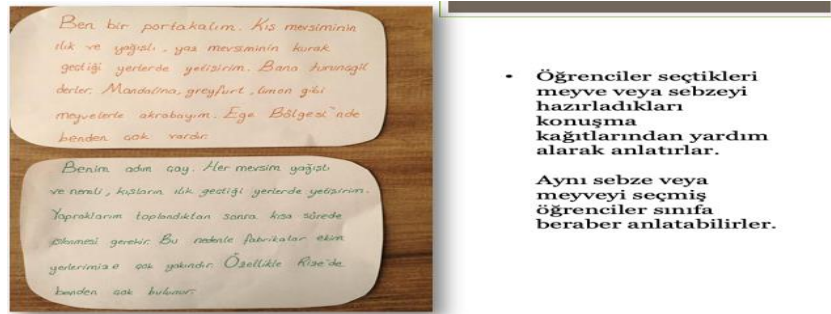 Ben bir portakalım. Kış mevsiminin
ılık ve yağışlı, yaz mevsiminin kurak
geçtiği yerlerde yetişirim. Bana turunçgil
derler. Mandalina, greyfurt, limon gibi
meyvelerle akrabayım. Ege Bölgesi'nde
benden çok vardır.
Benim adım çay. Her mevsim yağışlı
ve nemli, kışların ılık geçtiği yerlerde yetişirim.
Yapraklarım toplandıktan sonra kısa sürede
işlenmesi gerekir. Bu nedenle fabrikalar ekim
yerlerimize çok yakındır. Özellikle Rize'de
benden çok bulunur.
• Öğrenciler seçtikleri
meyve veya sebzeyi
hazırladıkları
konuşma
kağıtlarından yardım
alarak anlatırlar.
Aynı sebze veya
meyveyi seçmiş
öğrenciler sınıfa
beraber anlatabilirler.